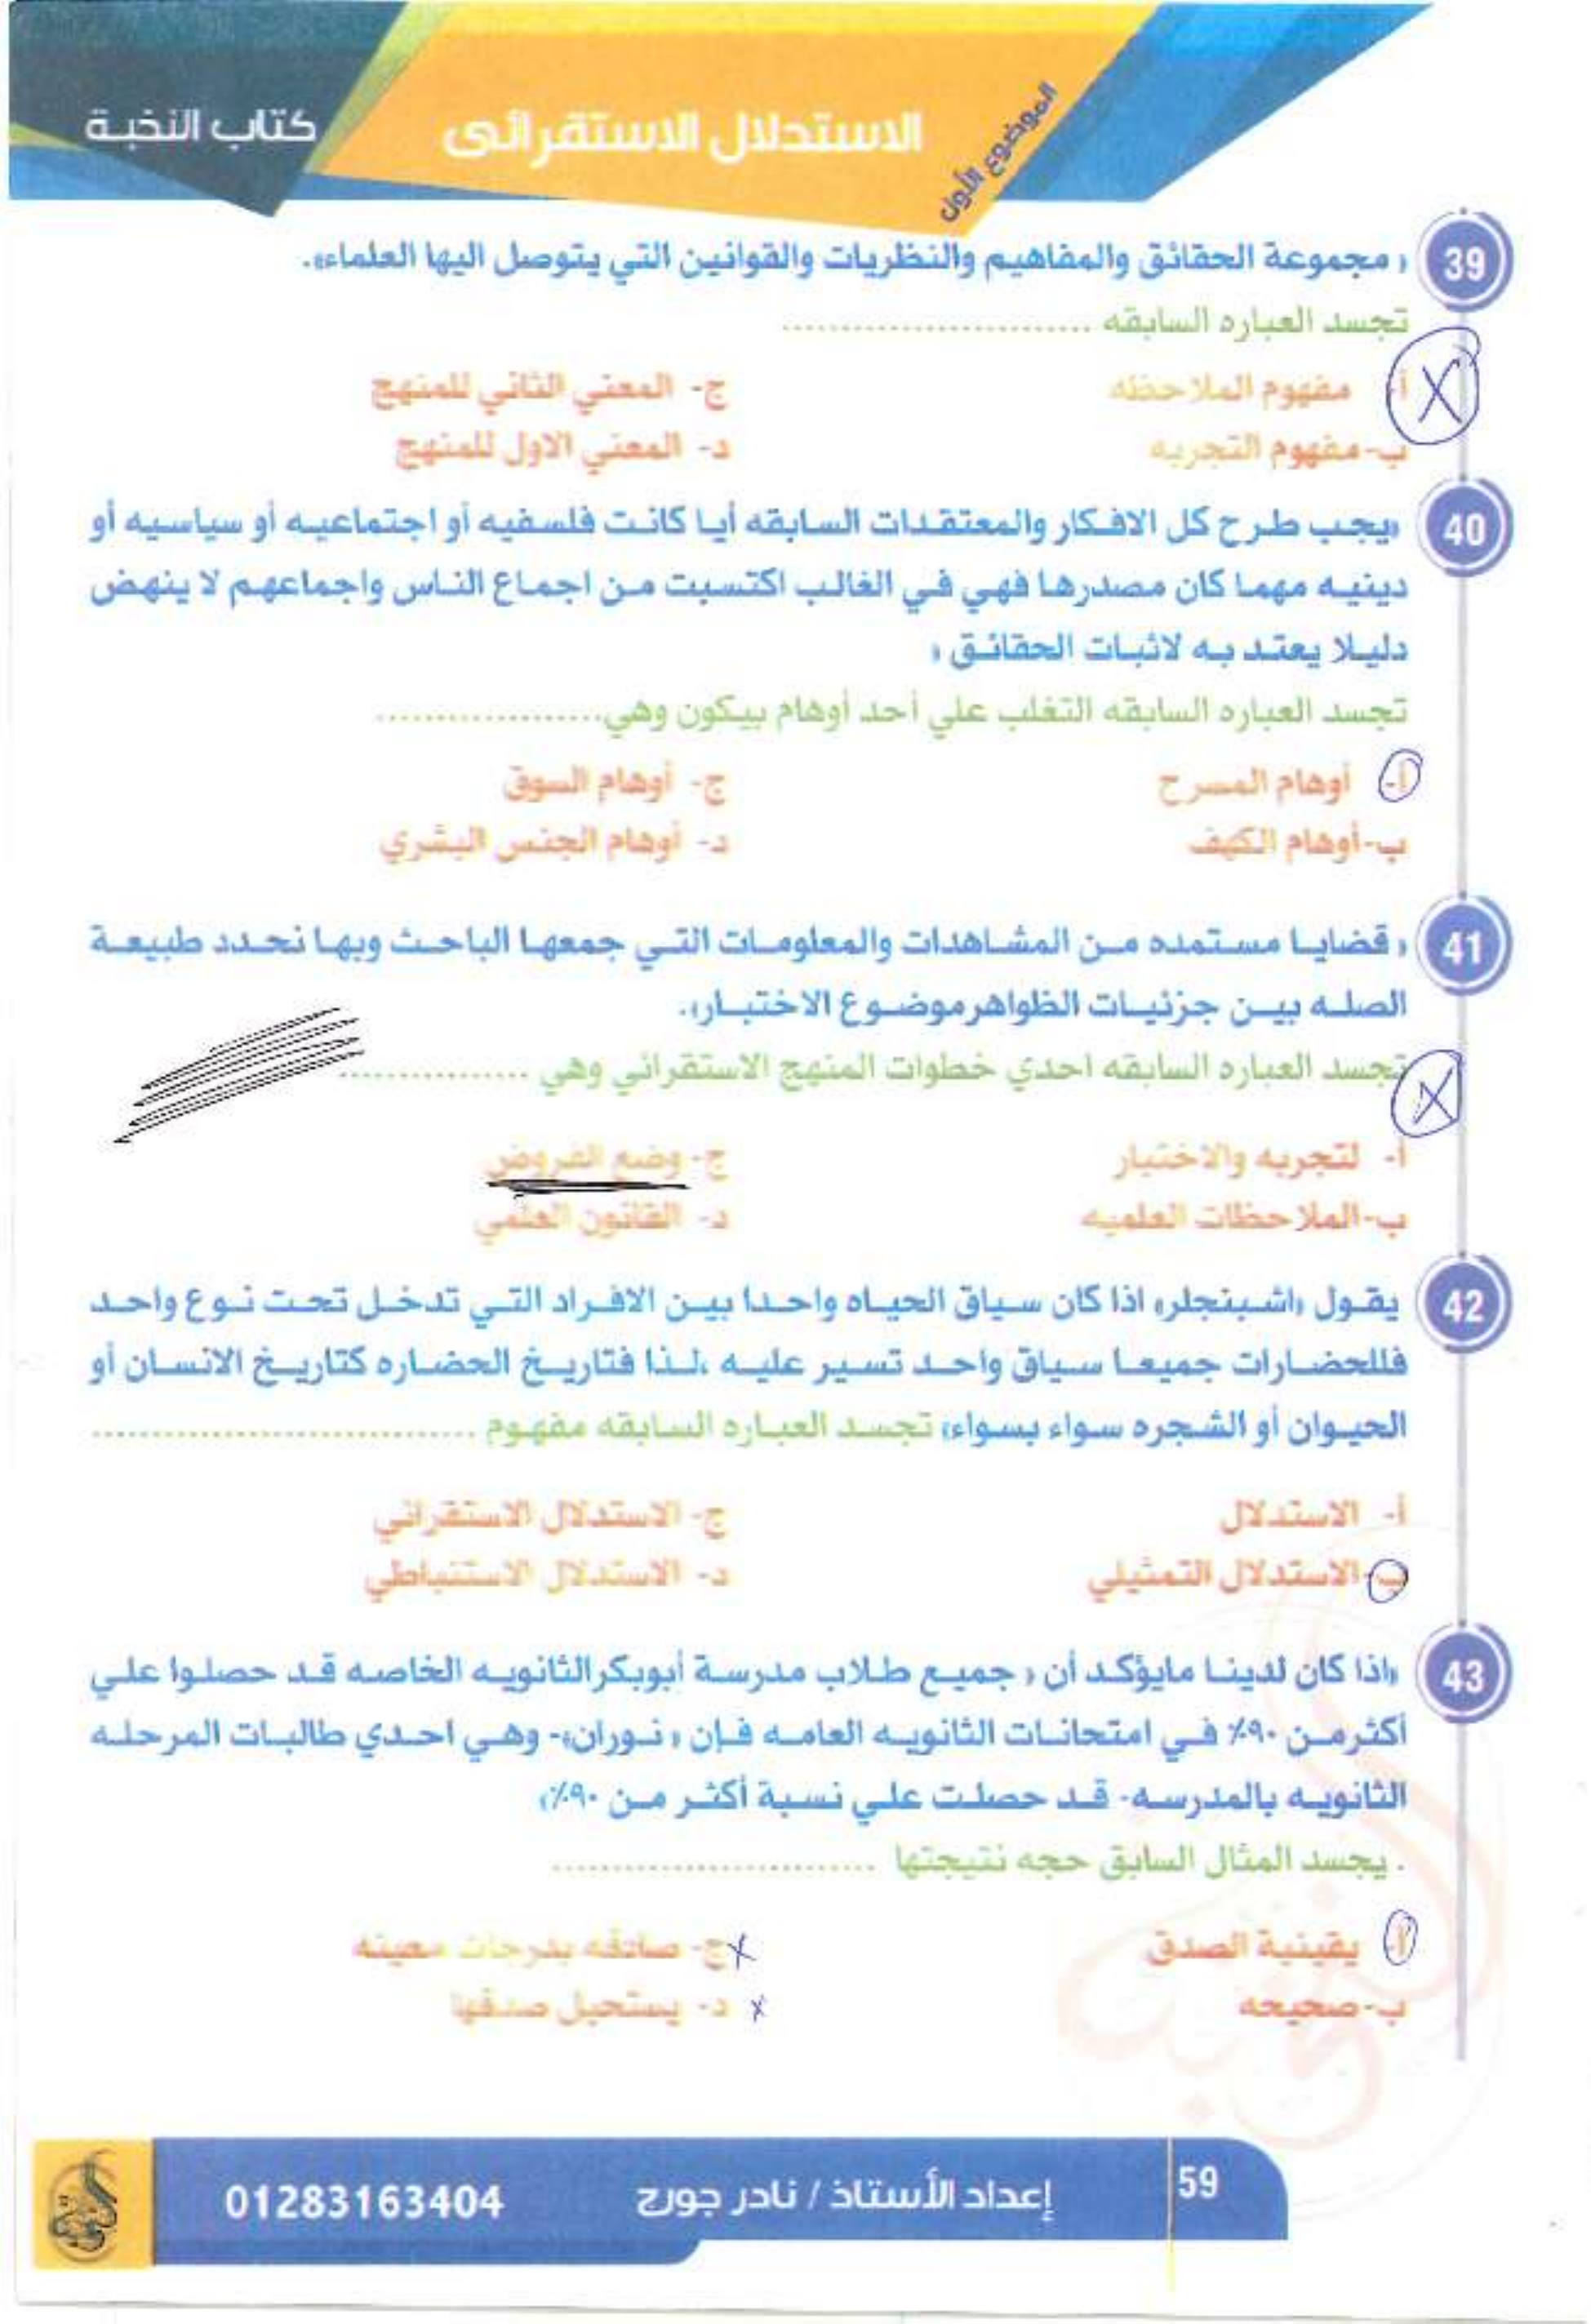 كتاب النخبة
الاستدلال الاستقرائى
الموضوع الأول
39 « مجموعة الحقائق والمفاهيم والنظريات والقوانين التي يتوصل اليها العلماء».
تجسد العباره السابقه ............................
أ- مفهوم الملاحظه
ج- المعني الثاني للمنهج
ب- مفهوم التجربه
د- المعني الاول للمنهج
40 «يجب طرح كل الافكار والمعتقدات السابقه أيا كانت فلسفيه أو اجتماعيه أو سياسيه أو
دينيه مهما كان مصدرها فهي في الغالب اكتسبت من اجماع الناس واجماعهم لا ينهض
دليلا يعتد به لاثبات الحقائق «
تجسد العباره السابقه التغلب علي أحد أوهام بيكون وهي....................
أ- أوهام المسرح
ج- أوهام السوق
ب- أوهام الكهف
د- أوهام الجنس البشري
41 « قضايا مستمده من المشاهدات والمعلومات التي جمعها الباحث وبها نحدد طبيعة
الصله بين جزئيات الظواهر موضوع الاختبار».
تجسد العباره السابقه احدي خطوات المنهج الاستقرائي وهي .................
أ- لتجربه والاختبار
ج- وضع الفروض
ب- الملاحظات العلميه
د- القانون العلمي
42 يقول «اشبنجلر» اذا كان سياق الحياه واحدا بين الافراد التي تدخل تحت نوع واحد
فللحضارات جميعا سياق واحد تسير عليه ،لذا فتاريخ الحضاره كتاريخ الانسان أو
الحيوان أو الشجره سواء بسواء» تجسد العباره السابقه مفهوم ..................................
أ- الاستدلال
ج- الاستدلال الاستقرائي
ب- الاستدلال التمثيلي
د- الاستدلال الاستنباطي
43 «اذا كان لدينا مايؤكد أن « جميع طلاب مدرسة أبوبكر الثانويه الخاصه قد حصلوا علي
أكثر من ٩٠٪ في امتحانات الثانويه العامه فإن « نوران»- وهي احدي طالبات المرحله
الثانويه بالمدرسه- قد حصلت علي نسبة أكثر من ٩٠٪»
. يجسد المثال السابق حجه نتيجتها .............................
أ- يقينية الصدق
ج- صادقه بدرجات معينه
ب- صحيحه
د- يستحيل صدقها
59
إعداد الأستاذ / نادر جورج
01283163404